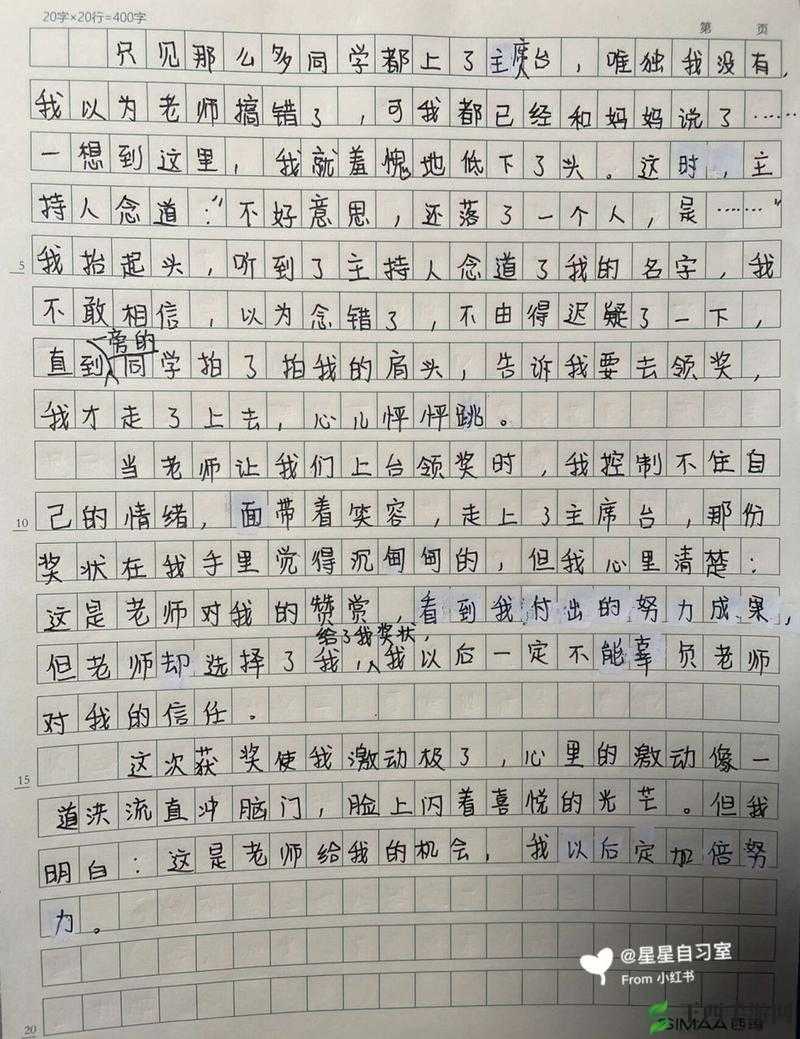 20字×20行=400字
第 页
只见那么多同学都上了主席台，唯独我没有，
我以为老师搞错了，可我都已经和妈妈说了……
一想到这里，我就羞愧地低下了头。这时，主
持人念道：“不好意思，还落了一个人，是……”
5
我抬起头，听到了主持人念道了我的名字，我
不敢相信，以为念错了，不由得迟疑了一下，
一旁的
直到同学拍了拍我的肩头，告诉我要去领奖，
我才走了上去，心儿怦怦跳。
当老师让我们上台领奖时，我控制不住自
10
己的情绪，面带着笑容，走上了主席台，那份
奖状在我手里觉得沉甸甸的，但我心里清楚：
这是老师对我的赞赏，看到我付出的努力成果，
给了我奖状，
但老师却选择了我，我以后一定不能辜负老师
对我的信任。
15
这次获奖使我激动极了，心里的激动像一
道洪流直冲脑门，脸上闪着喜悦的光芒。但我
明白：这是老师给我的机会，我以后定加倍努
力。
@星星自习室
From 小红书
20
SIMAA西玛